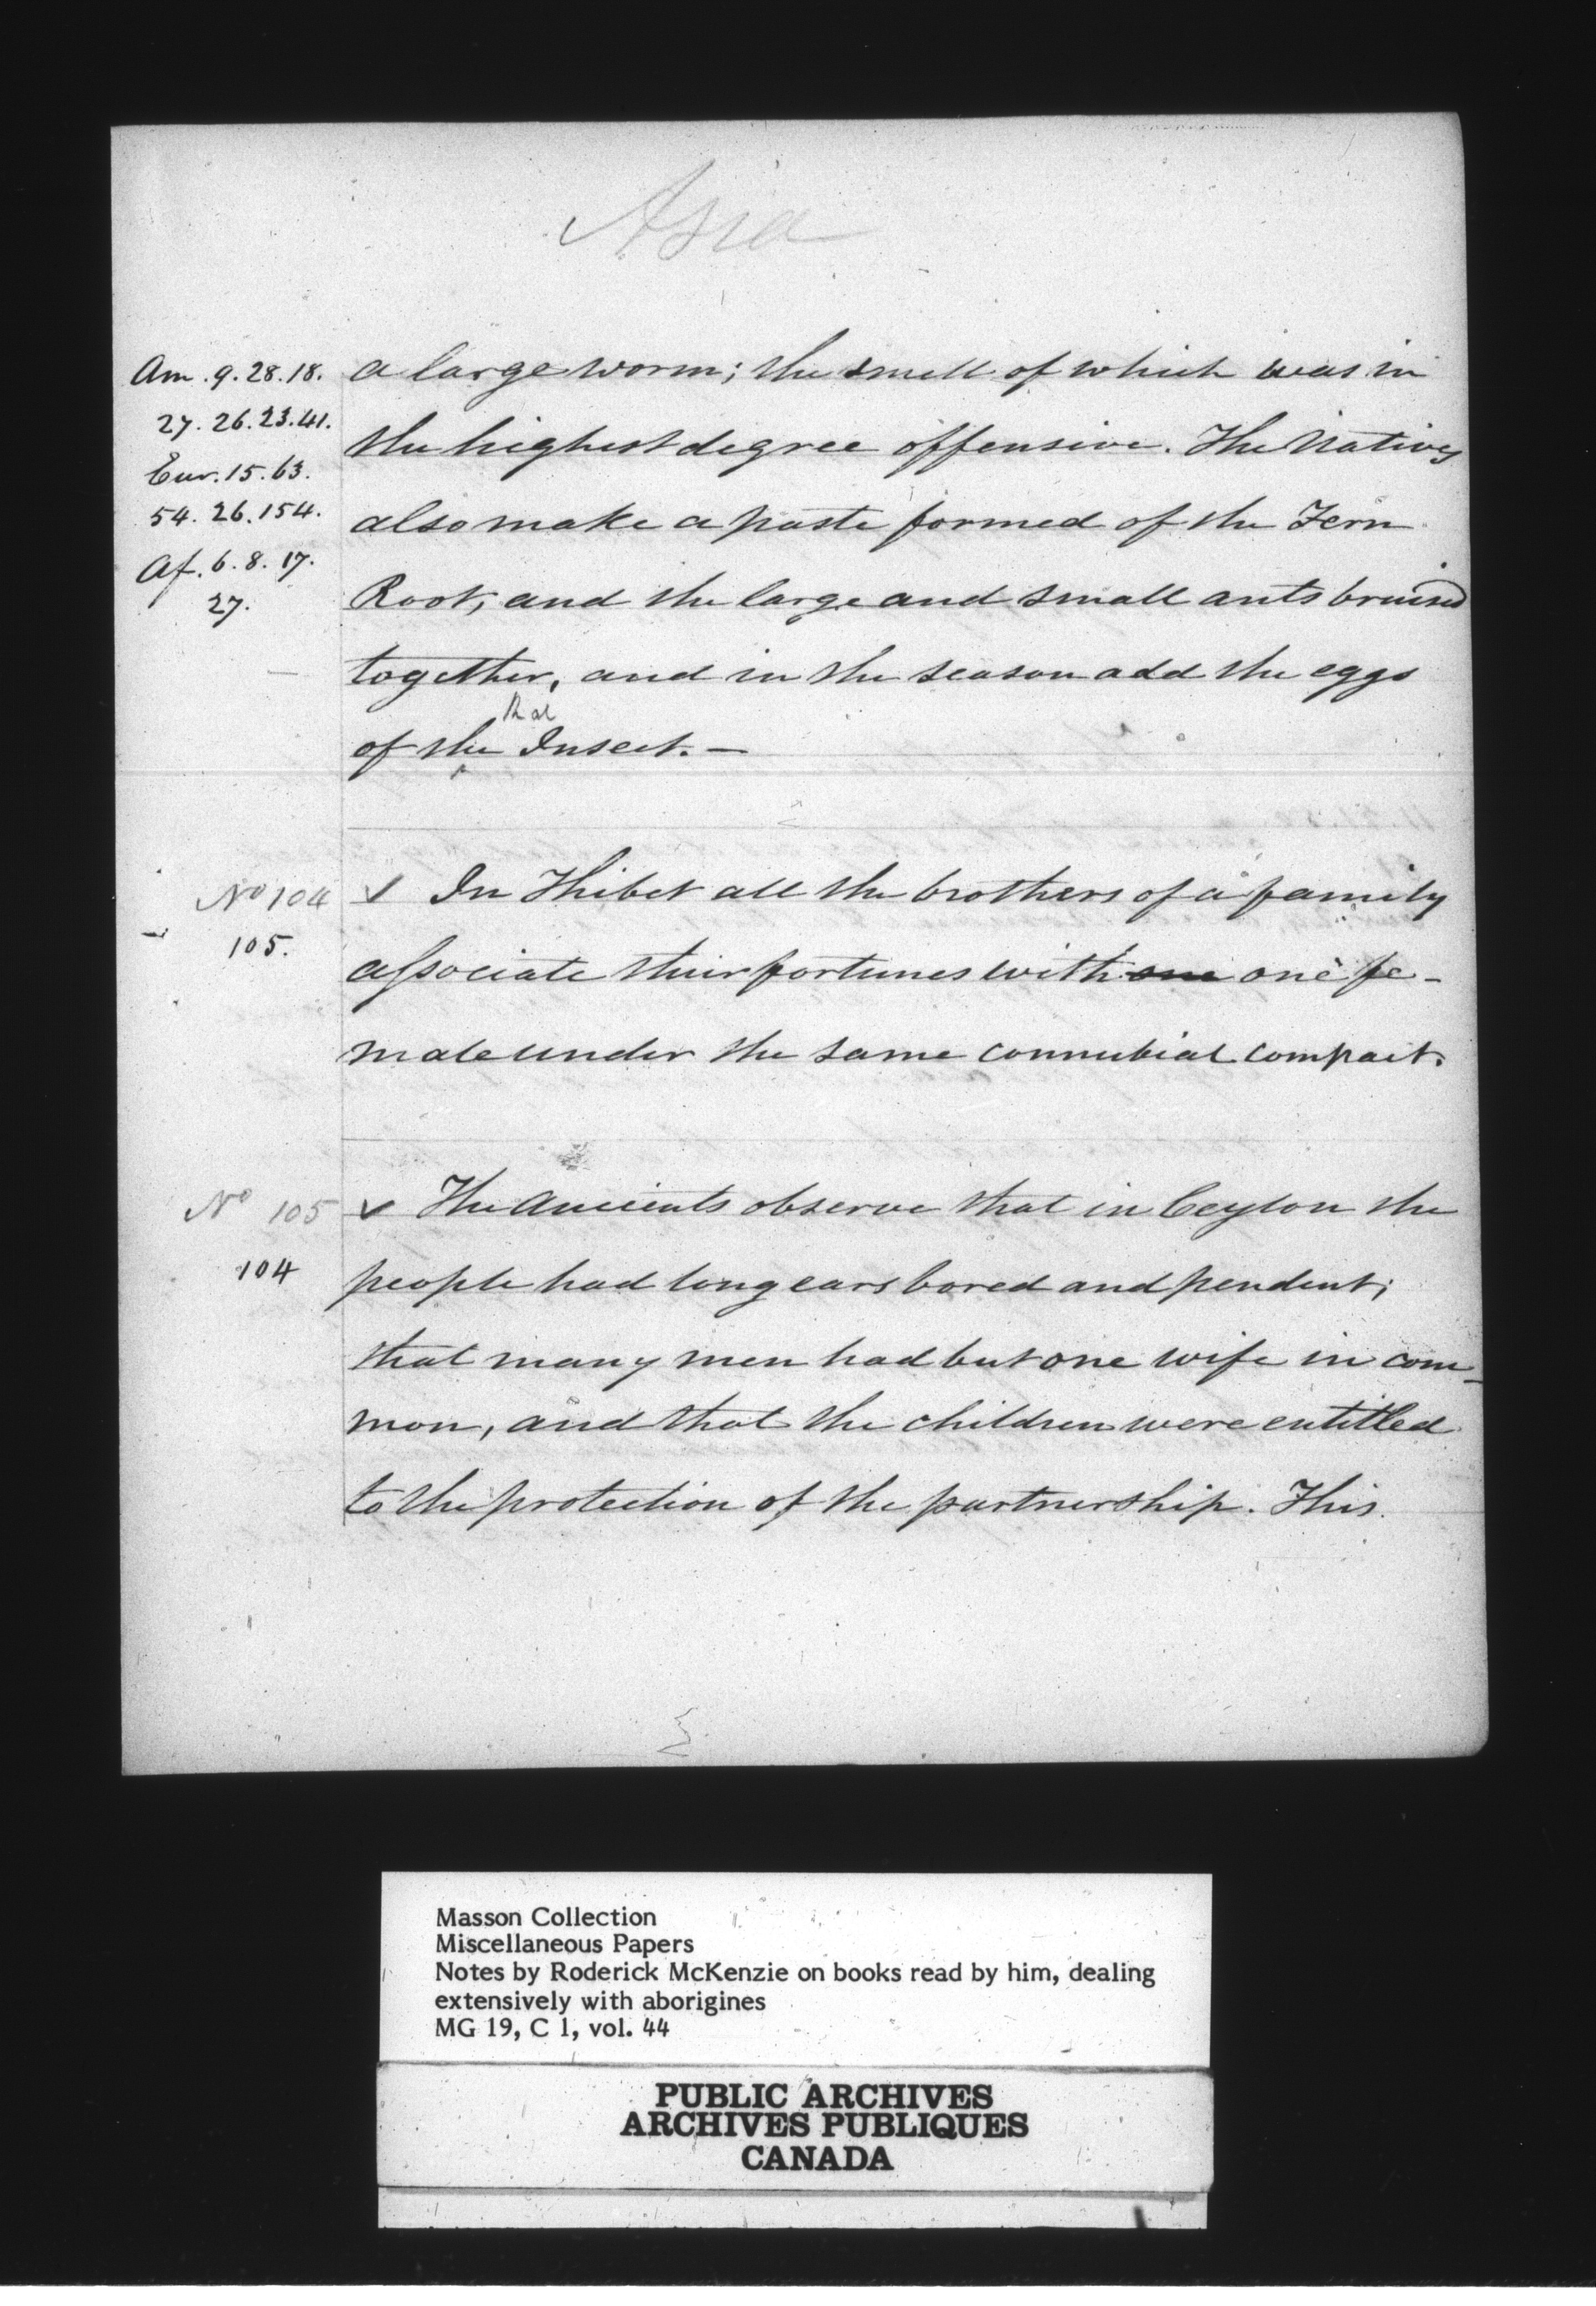 Asia
Am. 9. 28. 18.
27. 26. 23. 41.
Eur. 15. 63.
54. 26. 154.
Af. 6. 8. 17.
27.
a large worm; the smell of which was in
the highest degree offensive. The Natives
also make a paste formed of the Fern
Root, and the large and small ants bruised
together, and in the season add the eggs
of the that Insect. —
No 104
105.
✓ In Thibet all the brothers of a family
associate their fortunes with one one fe-
male under the same connubial compact.
No 105
104
✓ The Ancients observe that in Ceylon the
people had long ears bored and pendent;
that many men had but one wife in com-
mon, and that the children were entitled
to the protection of the partnership. This
Masson Collection
Miscellaneous Papers
Notes by Roderick McKenzie on books read by him, dealing
extensively with aborigines
MG 19, C 1, vol. 44
PUBLIC ARCHIVES
ARCHIVES PUBLIQUES
CANADA